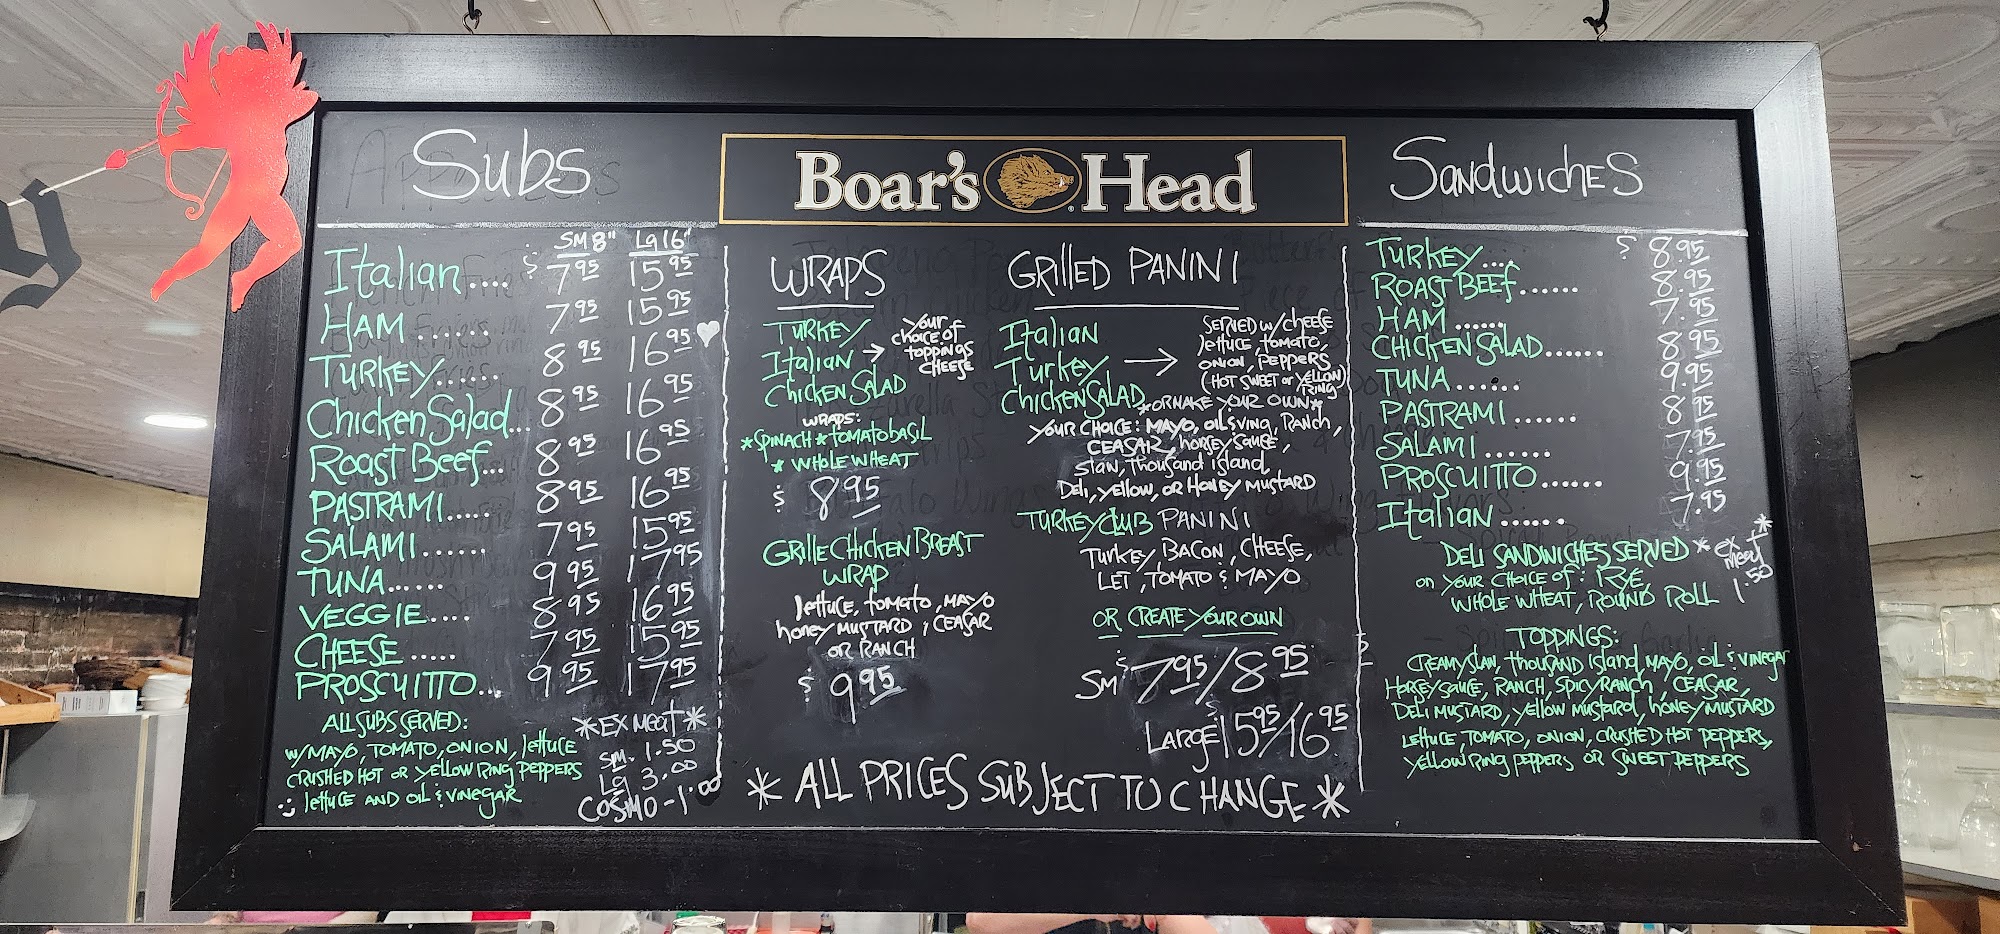 Subs
SM 8" Lg 16"
Italian.... $ 7.95 15.95
HAM ...... 7.95 15.95
TURKEY...... 8.95 16.95
Chicken Salad... 8.95 16.95
Roast Beef... 8.95 16.95
PASTRAMI..... 8.95 16.95
SALAMI...... 7.95 15.95
TUNA...... 9.95 17.95
VEGGIE.... 8.95 16.95
CHEESE ..... 7.95 15.95
PROSCUITTO... 9.95 17.95
ALL SUBS SERVED:
W/MAYO, TOMATO, ONION, lettuce
CRUSHED HOT OR YELLOW RING PEPPERS
lettuce AND OIL & VINEGAR
*EX MEAT*
SM. 1.50
Lg 3.00
COSMO - 1.00
Boar's Head
WRAPS
TURKEY
Italian →
CHICKEN SALAD
your
choice of
toppings
CHEESE
WRAPS:
*SPINACH * TOMATO BASIL
* WHOLE WHEAT
$ 8.95
GRILLE CHICKEN BREAST
WRAP
lettuce, tomato, MAYO
honey MUSTARD, CEASAR
OR RANCH
$ 9.95
GRILLED PANINI
Italian
Turkey →
CHICKEN SALAD
SERVED W/ CHEESE
lettuce, tomato,
ONION, PEPPERS
(HOT SWEET or YELLOW)
RING
*OR MAKE YOUR OWN*
YOUR CHOICE: MAYO, OIL & VING, RANCH,
CEASAR, horsey sauce,
Slaw, thousand island,
Deli, yellow, or HONEY MUSTARD
TURKEY CLUB PANINI
TURKEY, BACON, CHEESE,
LET, TOMATO & MAYO
OR CREATE YOUR OWN
SM $ 7.95/8.95
LARGE $ 15.95/16.95
* ALL PRICES SUBJECT TO CHANGE *
SANDWICHES
TURKEY.... $ 8.95
ROAST BEEF...... 8.95
HAM ...... 7.95
CHICKEN SALAD...... 8.95
TUNA...... 9.95
PASTRAMI...... 8.95
SALAMI...... 7.95
PROSCUITTO...... 9.95
Italian...... 7.95
DELI SANDWICHES SERVED
on YOUR CHOICE OF: RYE,
WHOLE WHEAT, ROUND ROLL
* ex meat *
1.50
TOPPINGS:
CREAMY SLAW, thousand island, MAYO, OIL & VINEGAR
HORSEY SAUCE, RANCH, SPICY RANCH, CEASAR,
DELI MUSTARD, yellow mustard, honey MUSTARD
Lettuce, TOMATO, ONION, CRUSHED HOT PEPPERS,
YELLOW RING PEPPERS OR SWEET PEPPERS